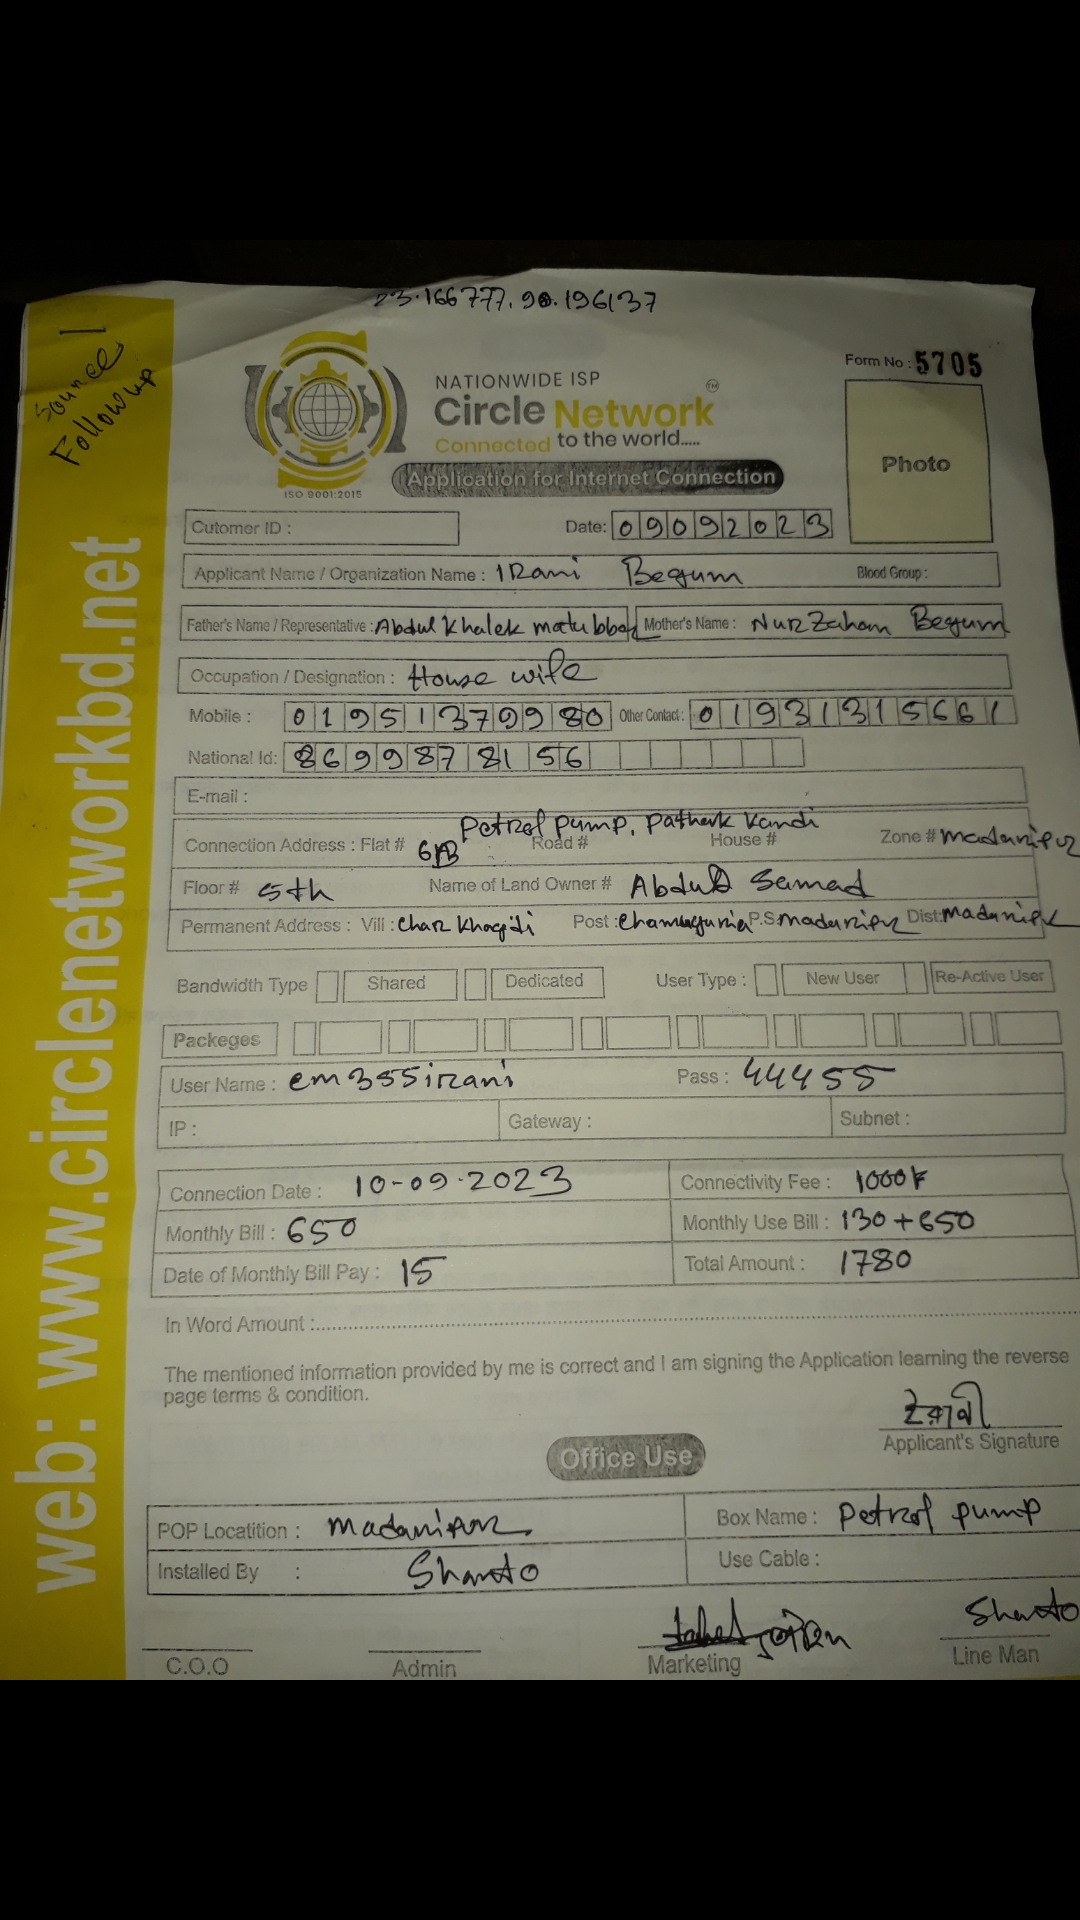 23.166777, 90.196137
Source
Followup
Form No : 5705
NATIONWIDE ISP
TM
Circle Network
Connected to the world.....
ISO 9001:2015
Application for Internet Connection
Photo
Cutomer ID :
Date: 09092023
Applicant Name / Organization Name : IRani Begum Blood Group :
Father's Name / Representative : Abdul Khalek matubbar Mother's Name : NurZaham Begum
Occupation / Designation : House wife
Mobile : 01951379980 Other Contact : 01931315661
National Id: 8699878156
E-mail :
Petrol pump, Pathak Kandi
Connection Address : Flat # Road # House # Zone # madaripur
Floor # 5th Name of Land Owner # Abdul Samad
Permanent Address : Vill : Char Khagdi Post : P.S madaripur Dist: Madaripur
Bandwidth Type Shared Dedicated User Type : New User Re-Active User
Packeges
User Name : em355irani Pass : 44455
IP : Gateway : Subnet :
Connection Date : 10-09-2023 Connectivity Fee : 1000
Monthly Bill : 650 Monthly Use Bill : 130+650
Date of Monthly Bill Pay : 15 Total Amount : 1780
In Word Amount :
The mentioned information provided by me is correct and I am signing the Application learning the reverse
page terms & condition.
ইরানী
Applicant's Signature
Office Use
POP Locatition : madaripur Box Name : Petrol pump
Installed By : Shanto Use Cable :
Shanto
C.O.O Admin Marketing Line Man
web: www.circlenetworkbd.net